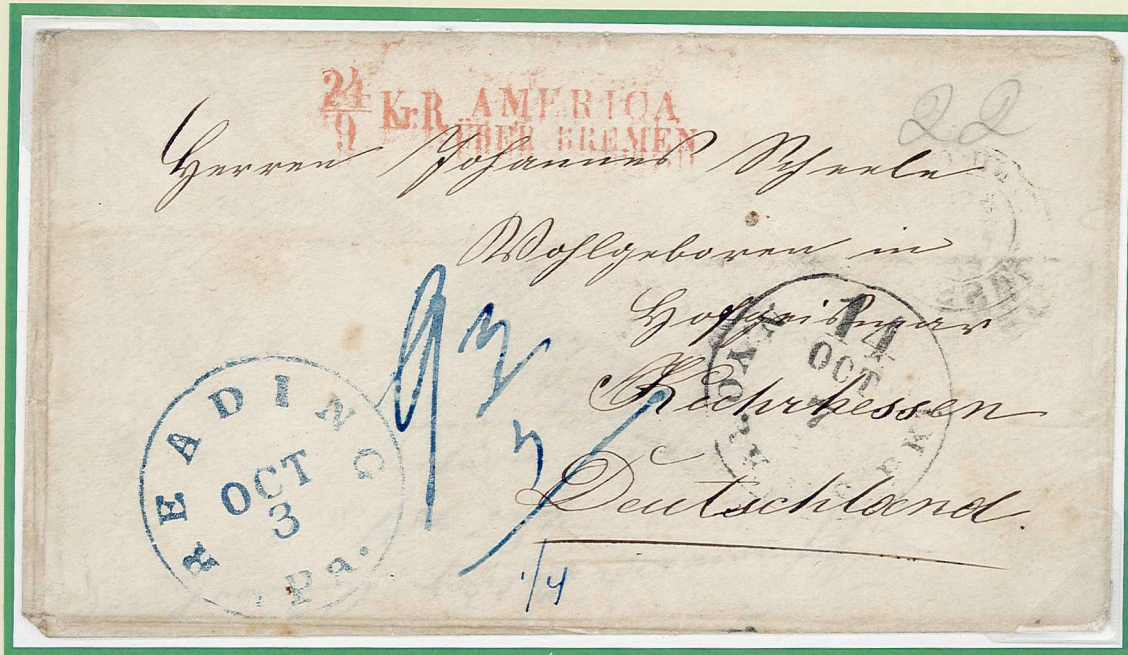 24/9 Kr.R AMERICA
ÜBER BREMEN
22
Herren Johannes Scheele
Wohlgeboren in
Hofgeismar
Kuhrhessen
Deutschland.
READING
OCT
3
Pa.
93
14
OCT
7
1/4